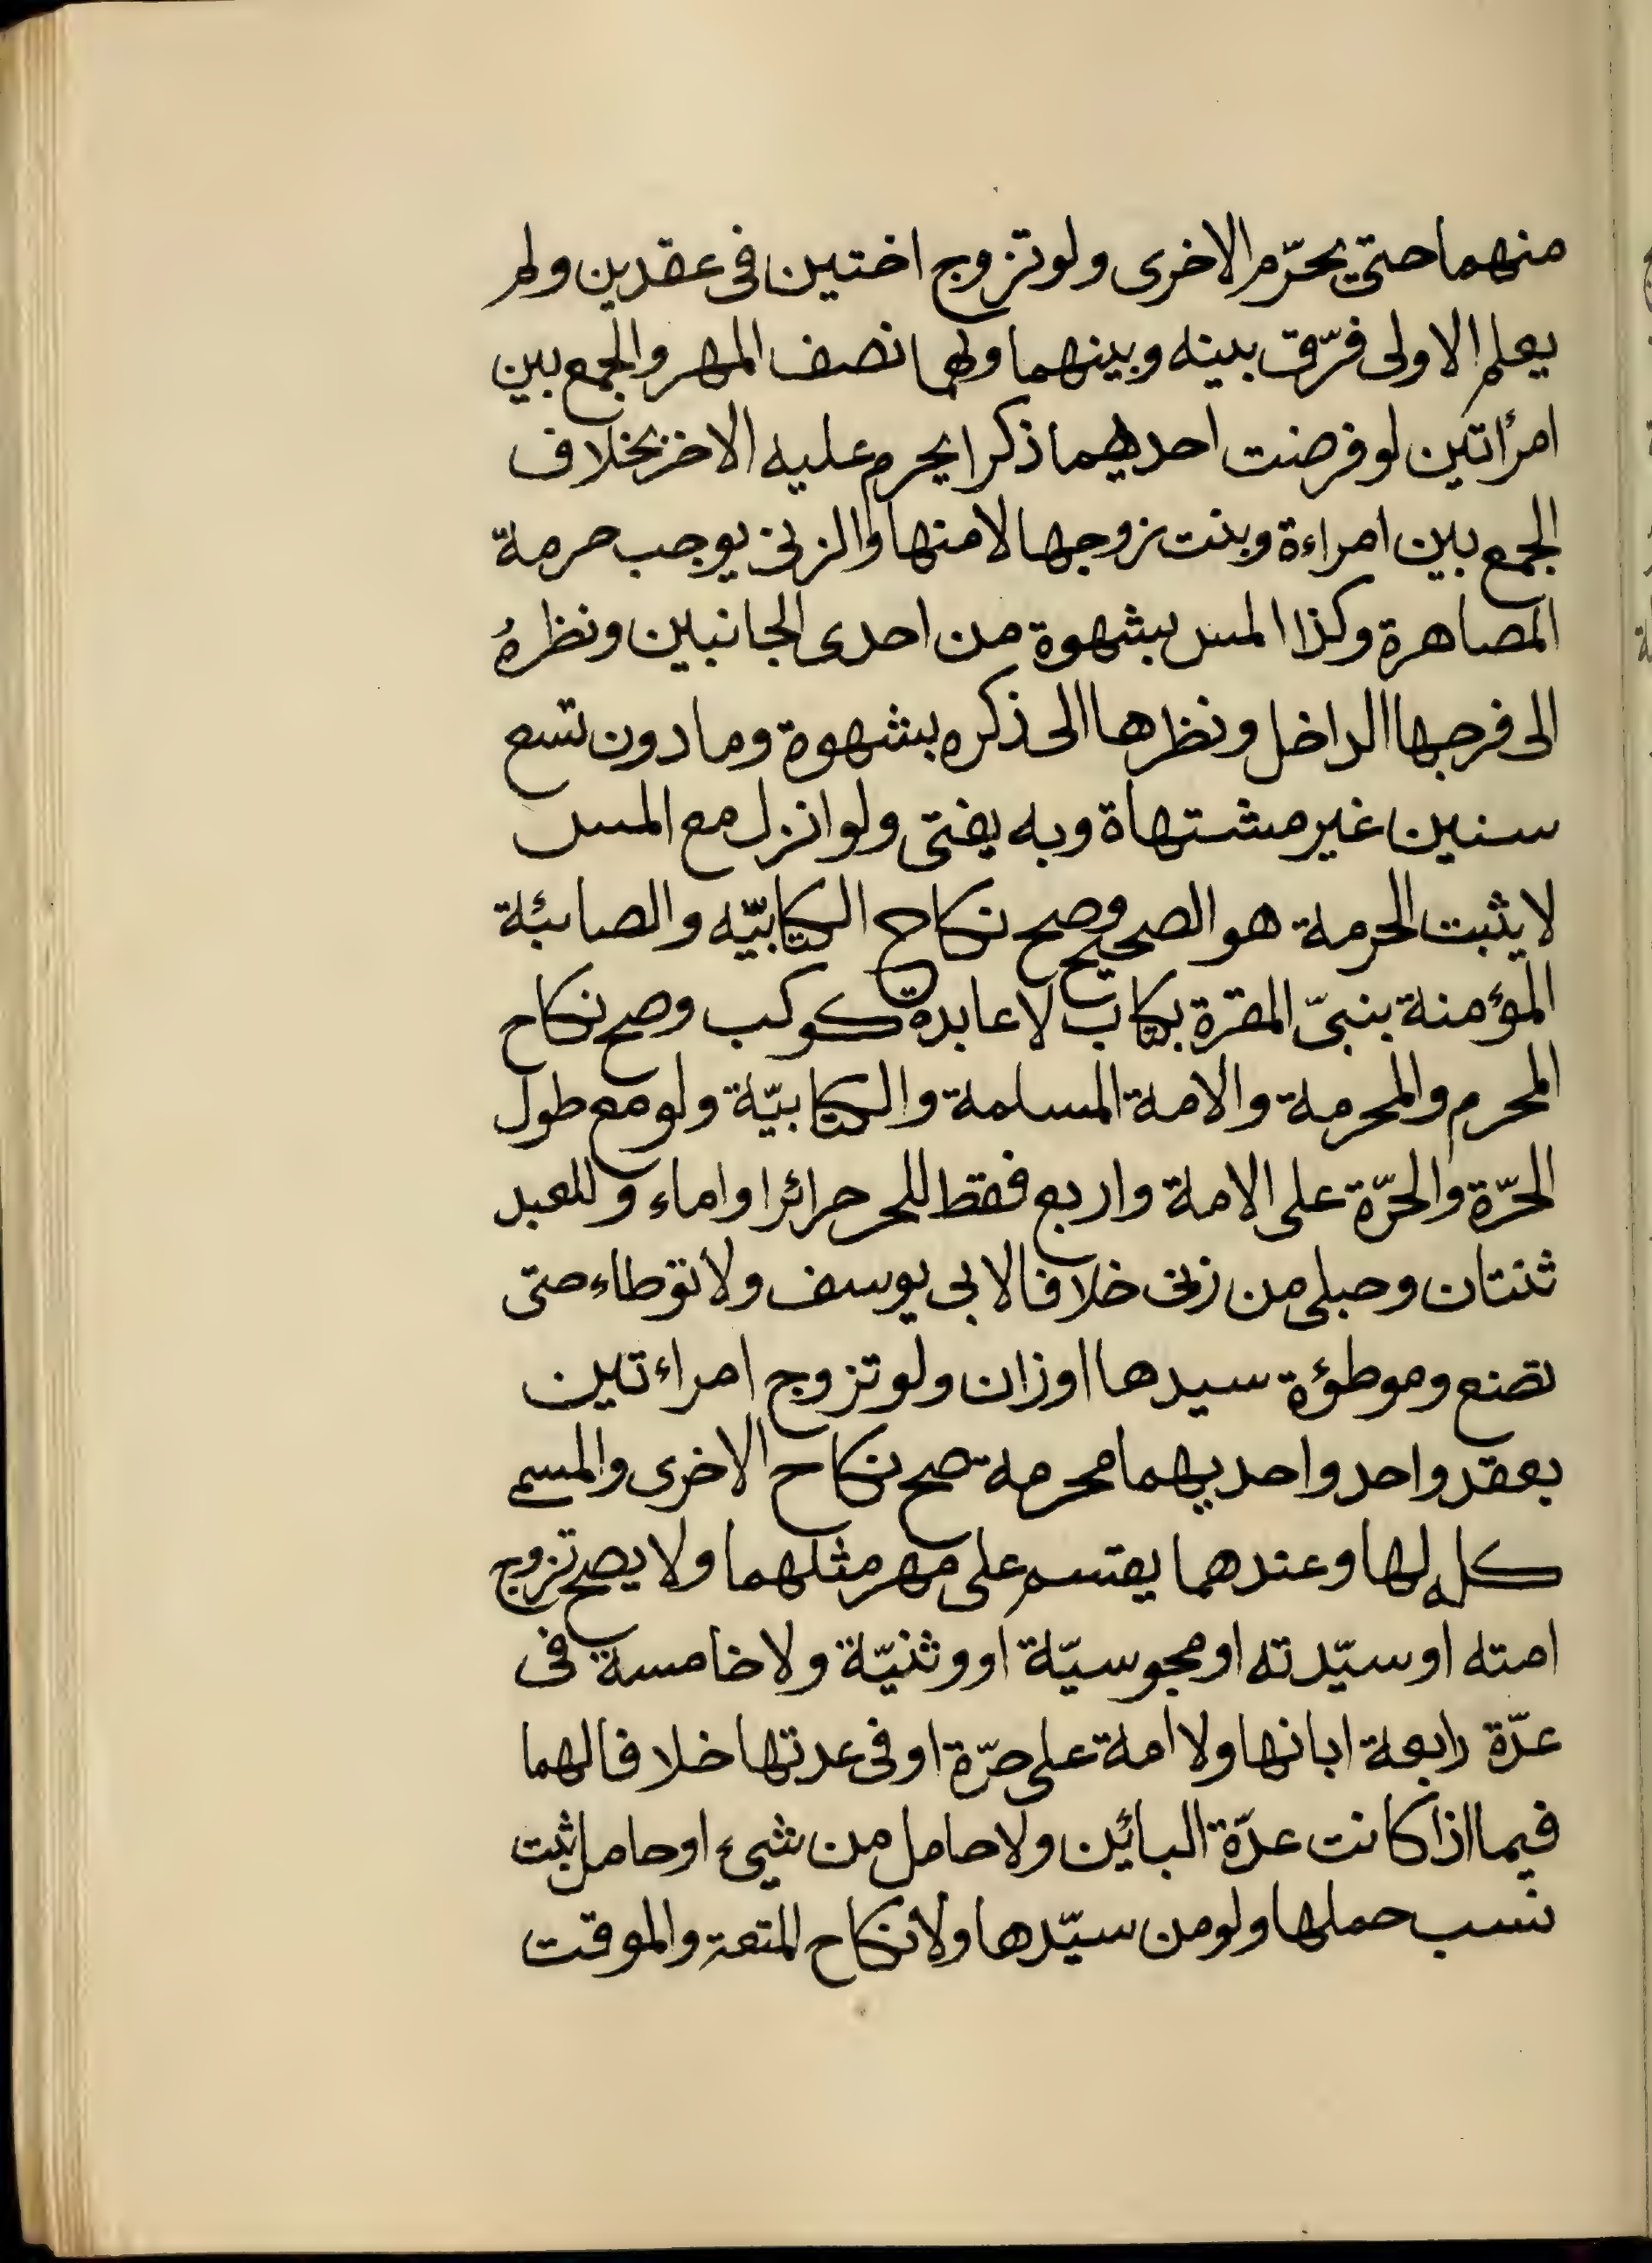 منهما حتى يحرّم الاخرى ولو تزوج اختين فى عقدين ولم
يعلم الاولى فرّق بينه وبينهما ولهما نصف المهر والجمع بين
امرأتين لو فرضت احديهما ذكرا يحرم عليه الاخر بخلاف
الجمع بين امراءة وبنت زوجها لا منها والزنى يوجب حرمة
المصاهرة وكذا المس بشهوة من احدى الجانبين ونظرهُ
الى فرجها الداخل ونظرها الى ذكره بشهوة وما دون تسع
سنين غير مشتهاة وبه يفتى ولو انزل مع المس
لا يثبت الحرمة هو الصحيح وصح نكاح الكتابيّه والصابئة
المؤمنة بنبىّ المقرة بكتاب لا عابدة كوكب وصح نكاح
المحرم والمحرمة والامة المسلمة والكتابيّة ولو مع طول
الحرّة والحرّة على الامة واربع فقط للحر حرائرا واماء وللعبد
ثنتان وحبلى من زنى خلافا لابى يوسف ولا توطاء حتى
تضع وموطؤة سيدها او زان ولو تزوج امراءتين
بعقد واحد واحديهما محرمة صح نكاح الاخرى والمسمى
كله لها وعندهما يقتسم على مهر مثلهما ولا يصح تزوج
امته او سيّدته او مجوسيّة او وثنيّة ولا خامسة فى
عدّة رابعة ابانها ولا امة على حرّة او فى عدتها خلافا لهما
فيما اذا كانت عدّة البائن ولا حامل من شىء او حامل ثبت
نسب حملها ولو من سيّدها ولا نكاح المتعة والموقت